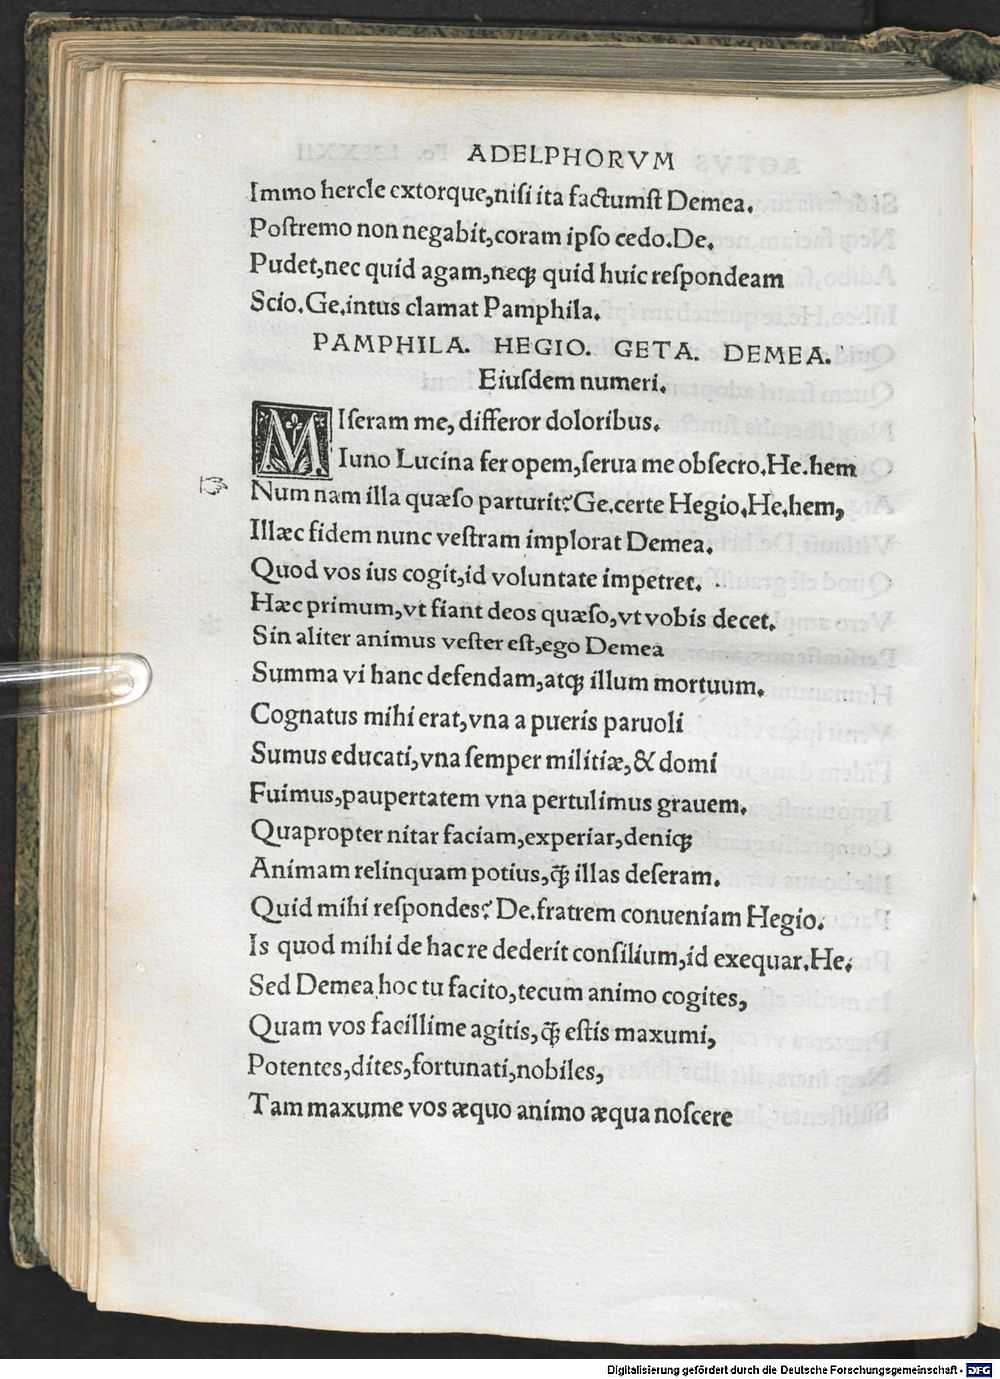 ADELPHORVM
Immo hercle extorque,niſi ita factumſt Demea.
Poſtremo non negabit,coram ipſo cedo.De.
Pudet,nec quid agam,neqꝫ quid huic reſpondeam
Scio.Ge.intus clamat Pamphila.
PAMPHILA. HEGIO. GETA. DEMEA.
Eiuſdem numeri.
MIſeram me, differor doloribus.
Iuno Lucina fer opem,ſerua me obſecro.He.hem
Num nam illa quæſo parturit?Ge.certe Hegio.He.hem,
Illæc fidem nunc veſtram implorat Demea.
Quod vos ius cogit,id voluntate impetret.
Hæc primum,vt fiant deos quæſo,vt vobis decet.
Sin aliter animus veſter eſt,ego Demea
Summa vi hanc defendam,atqꝫ illum mortuum.
Cognatus mihi erat,vna a pueris paruoli
Sumus educati,vna ſemper militiæ,& domi
Fuimus,paupertatem vna pertulimus grauem.
Quapropter nitar faciam,experiar,deniqꝫ
Animam relinquam potius,q̄ꝫ illas deſeram.
Quid mihi reſpondes?De.fratrem conueniam Hegio.
Is quod mihi de hac re dederit conſilium,id exequar.He.
Sed Demea hoc tu facito,tecum animo cogites,
Quam vos facillime agitis,q̄ꝫ eſtis maxumi,
Potentes,dites,fortunati,nobiles,
Tam maxume vos æquo animo æqua noſcere
Digitalisierung gefördert durch die Deutsche Forschungsgemeinschaft - DFG